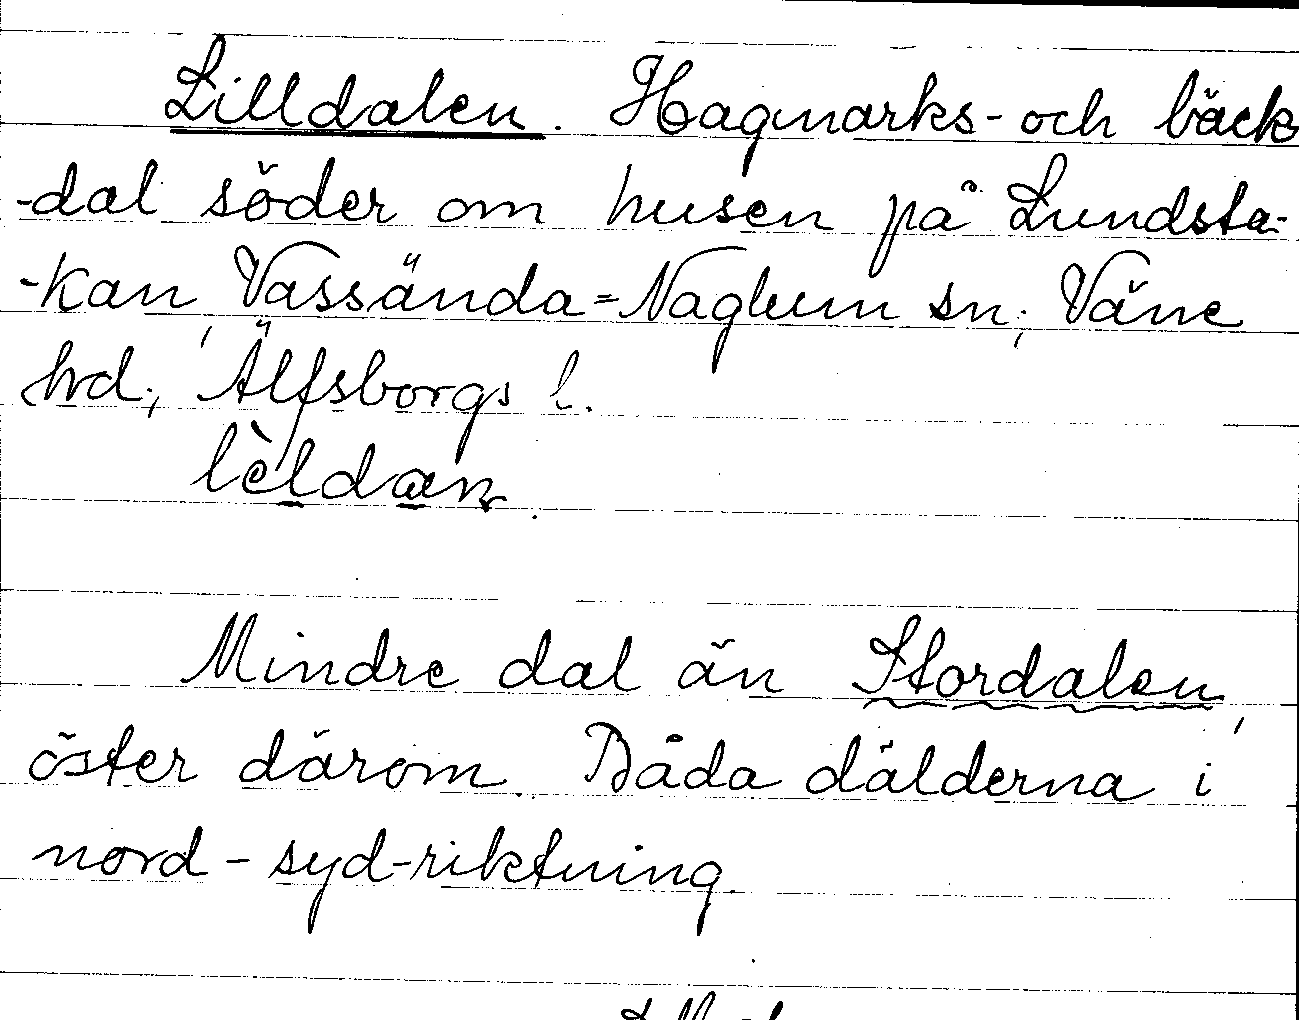 Lilldalen. Hagmarks- och bäck
-dal söder om husen på Lundsta-
-kan, Vassända=Naglum sn; Väne
hrd., Älfsborgs l.
lèldan.
Mindre dal än Stordalen,
öster därom. Båda dälderna i
nord-syd-riktning.